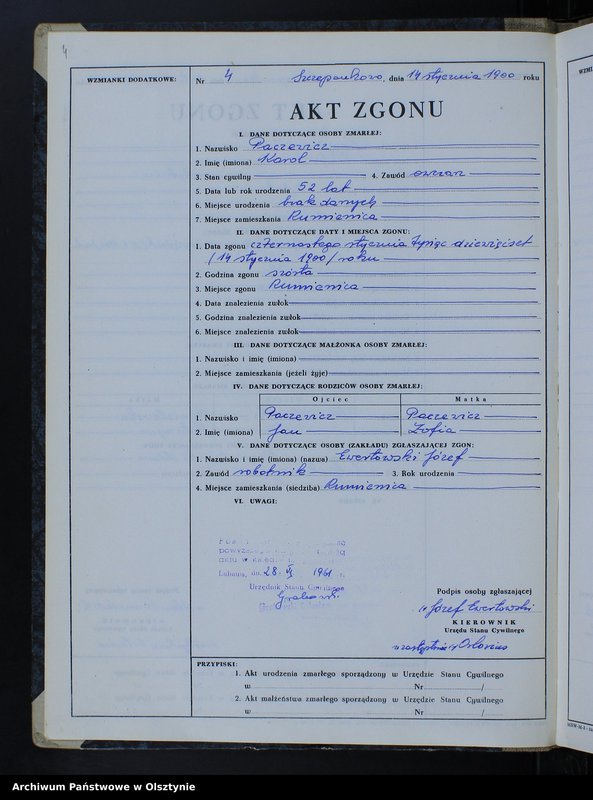 4
WZMIANKI DODATKOWE:
Nr 4 Szczepankowo, dnia 14 stycznia 1900 roku
AKT ZGONU
I. DANE DOTYCZĄCE OSOBY ZMARŁEJ:
1. Nazwisko Paczewicz
2. Imię (imiona) Karol
3. Stan cywilny 4. Zawód owczarz
5. Data lub rok urodzenia 52 lat
6. Miejsce urodzenia brak danych
7. Miejsce zamieszkania Rumienica
II. DANE DOTYCZĄCE DATY I MIEJSCA ZGONU:
1. Data zgonu czternastego stycznia tysiąc dziewięćset
/14 stycznia 1900/ roku
2. Godzina zgonu szósta
3. Miejsce zgonu Rumienica
4. Data znalezienia zwłok
5. Godzina znalezienia zwłok
6. Miejsce znalezienia zwłok
III. DANE DOTYCZĄCE MAŁŻONKA OSOBY ZMARŁEJ:
1. Nazwisko i imię (imiona)
2. Miejsce zamieszkania (jeżeli żyje)
IV. DANE DOTYCZĄCE RODZICÓW OSOBY ZMARŁEJ:
Ojciec Matka
1. Nazwisko Paczewicz Paczewicz
2. Imię (imiona) Jan Zofia
V. DANE DOTYCZĄCE OSOBY (ZAKŁADU) ZGŁASZAJĄCEJ ZGON:
1. Nazwisko i imię (imiona) (nazwa) Ewertowski Józef
2. Zawód robotnik 3. Rok urodzenia
4. Miejsce zamieszkania (siedziba) Rumienica
VI. UWAGI:
Lubawa, dn. 28. VI 1961 r.
Urzędnik Stanu Cywilnego
Podpis osoby zgłaszającej
Józef Ewertowski
KIEROWNIK
Urzędu Stanu Cywilnego
w zastępstwie
PRZYPISKI:
1. Akt urodzenia zmarłego sporządzony w Urzędzie Stanu Cywilnego
w Nr /
2. Akt małżeństwa zmarłego sporządzony w Urzędzie Stanu Cywilnego
w Nr /
Archiwum Państwowe w Olsztynie